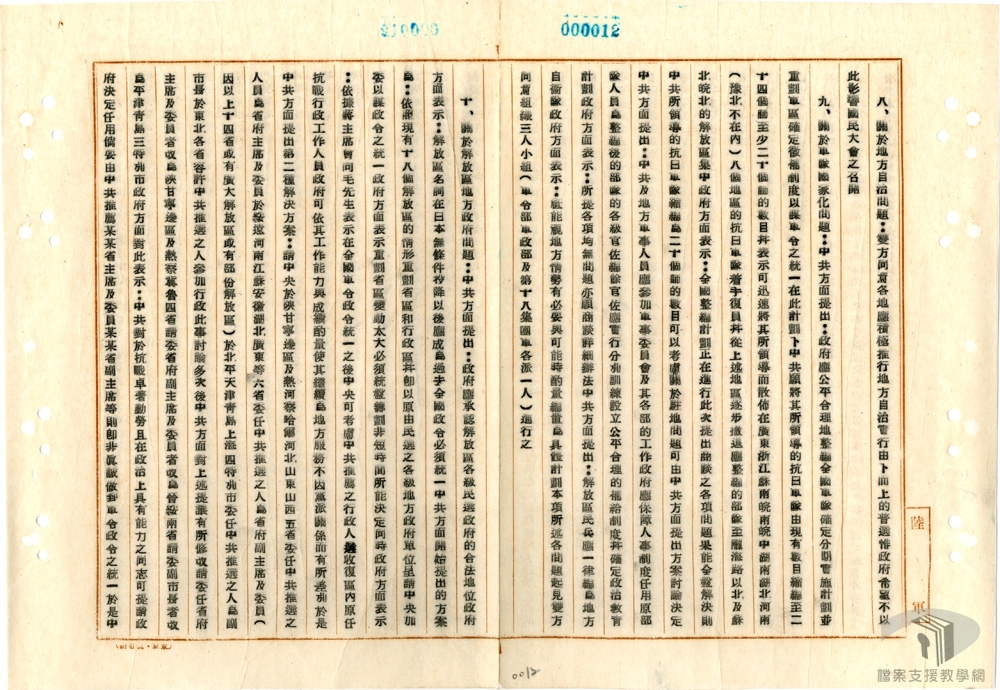 000012
八、關於地方自治問題：雙方同意各地應積極推行地方自治實行由下而上的普選惟政府希望不以
此影響國民大會之召開
九、關於軍隊國家化問題：中共方面提出：政府應公平合理地整編全國軍隊確定分期實施計劃並
重劃軍區確定徵補制度以謀軍令之統一在此計劃下中共願將其所領導的抗日軍隊由現有數目縮編至二
十四個師至少二十個師的數目幷表示可迅速將其所領導而散佈在廣東浙江蘇南皖南皖中湖南湖北河南
（豫北不在內）八個地區的抗日軍隊着手復員幷從上述地區逐步撤退應整編的部隊至隴海路以北及蘇
北皖北的解放區集中政府方面表示：全國整編計劃正在進行此次提出商談之各項問題果能全盤解決則
中共所領導的抗日軍隊縮編為二十個師的數目可以考慮關於駐地問題可由中共方面提出方案討論決定
中共方面提出：中共及地方軍事人員應參加軍事委員會及其各部的工作政府應保障人事制度任用原部
隊人員為整編後的部隊的各級官佐編餘官佐應實行分別訓練設立公平合理的補給制度幷確定政治教育
計劃政府方面表示：所提各項均無問題亦願商談詳細辦法中共方面提出：解放區民兵應一律編為地方
自衞隊政府方面表示：祗能視地方情勢有必要與可能時酌量編置為具體計劃本項所述各問題起見雙方
同意組織三人小組（軍令部軍政部及第十八集團軍各派一人）進行之
十、關於解放區地方政府問題：中共方面提出：政府應承認解放區各級民選政府的合法地位政府
方面表示：解放區名詞在日本無條件投降以後應成為過去全國政令必須統一中共方面開始提出的方案
為：依據現有十八個解放區的情形重劃省區和行政區幷即以原由民選之各級地方政府單位呈請中央加
委以謀政令之統一政府方面表示重劃省區變動太大必須統籌轉劃非短時間所能決定同時政府方面表示
：依據蔣主席曾向毛先生表示在全國軍令政令統一之後中央可考慮中共推薦之行政人選收復區內原任
抗戰行政工作人員政府可依其工作能力與成績酌量使其繼續為地方服務不因黨派關係而有所差別於是
中共方面提出第二種解決方案：請中央於陝甘寧邊區及熱河察哈爾河北山東山西五省委任中共推選之
人員為省府主席及委員於綏遠河南江蘇安徽湖北廣東等六省委任中共推選之人為省府副主席及委員（
因以上十四省或有廣大解放區或有部份解放區）於北平天津青島上海四特別市委任中共推選之人為副
市長於東北各省容許中共推選之人參加行政此事討論多次後中共方面對上述提議有所修改請委任省府
主席及委員者改為陝甘寧邊區及熱察冀魯四省請委省府副主席及委員者改為晉綏兩省請委副市長者改
為平津青島三特別市政府方面對此表示：中共對於抗戰卓著勳勞且在政治上具有能力之同志可提請政
府決定任用倘要由中共推薦某某省主席及委員某某省副主席等則即非真誠做到軍令政令之統一於是中
陸軍
0012
檔案支援教學網